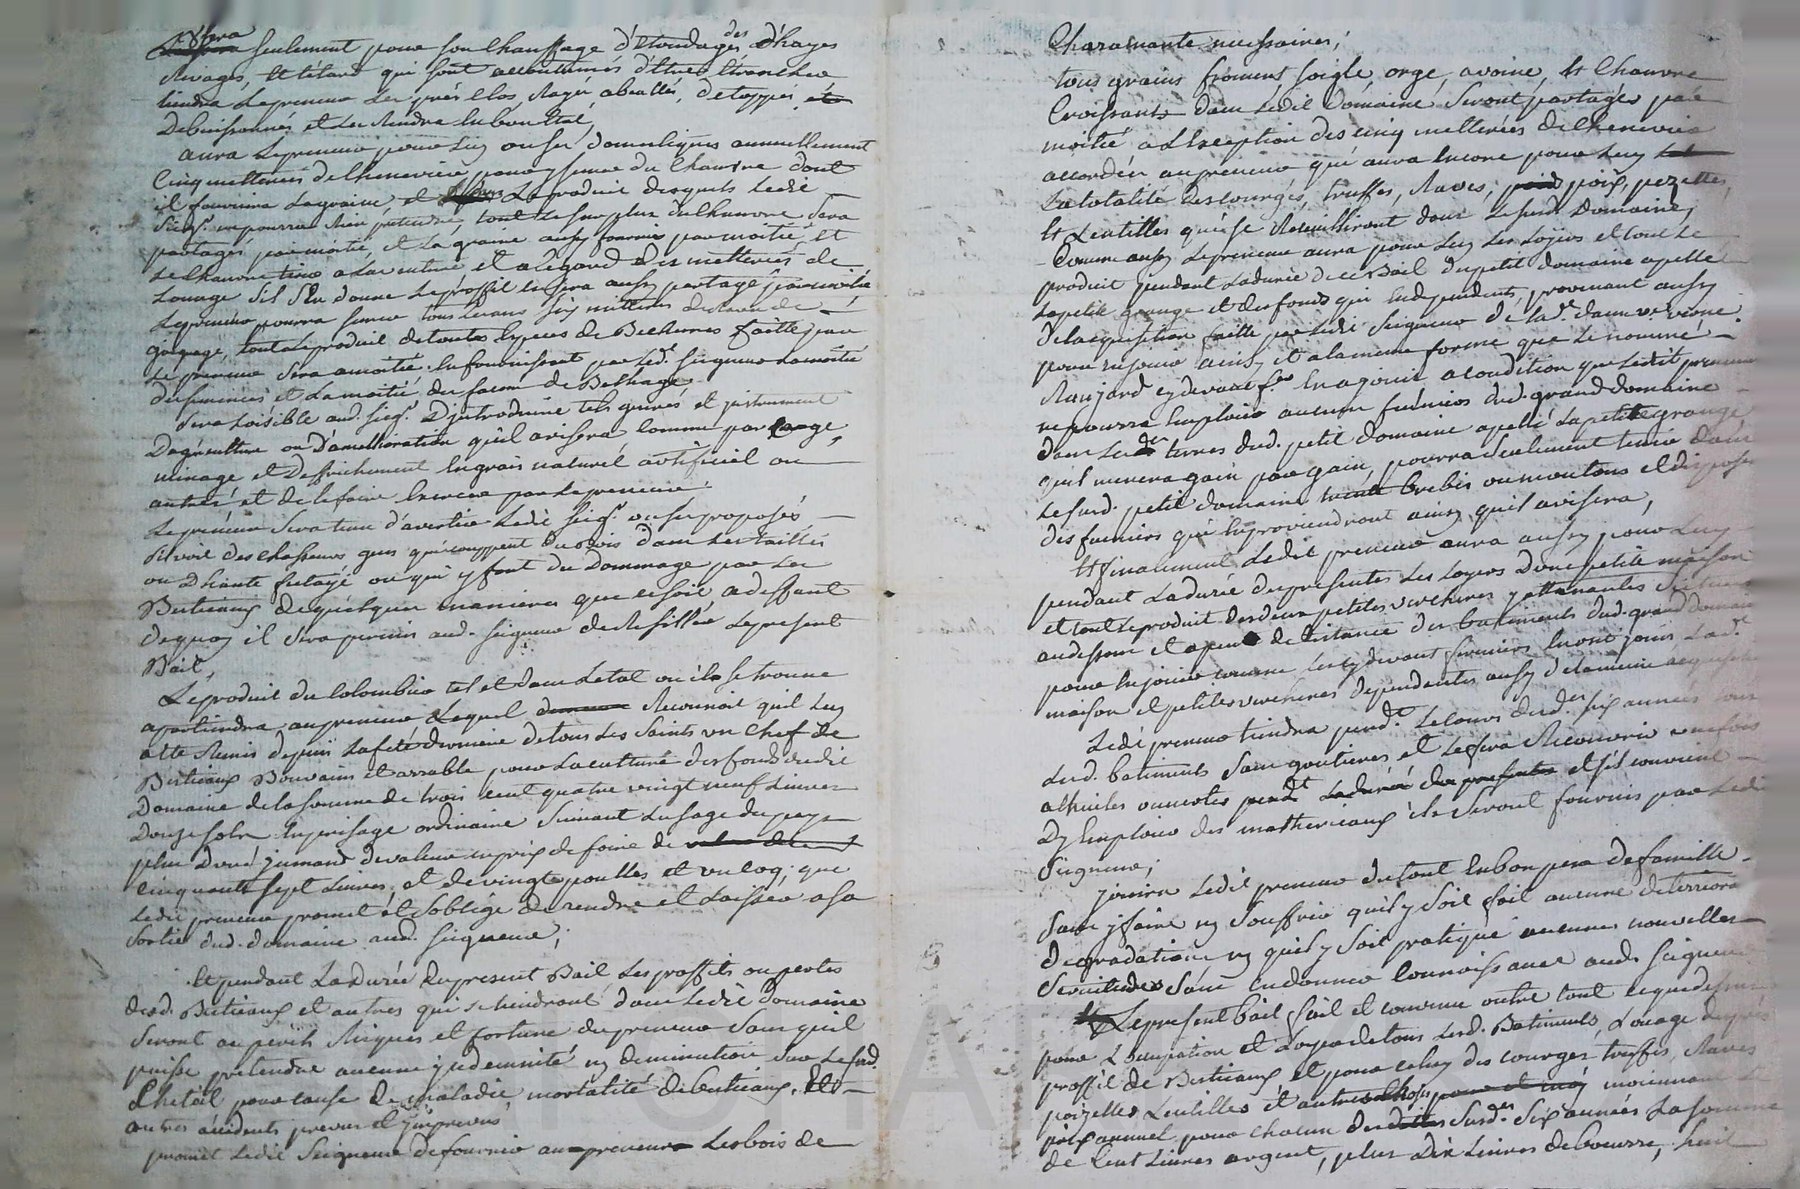 Usera
seulement pour son chauffage d'élondages des d'hayes
Rivages, et tétard qui sont accoutumés d'êtres étranchée
tiendra le preneur les prés clos, Rayer abeallés, détoppés,
Debuissonnés et les Rendra en bon Etat,
aura le preneur pour luy ou ses domestiques annuellement
Cinq metterées de cheneviere pour y semer du Chanvre dont
il fournira la graine, et le produit desquels ledit
Seigr. ne pourra Rien pretendre, tout le surplus du chanvre sera
partagés par moitié et la graine aussy fournie par moitié, et
le chanvre tiré a la culture et a l'egard des metterées de
Louage s'il s'en donne le proffit en sera aussy partagé par moitié
Le preneur pourra semer tous les ans six mettées de
goipage, tout le produit de toutes especes de Becherures faitte par
le preneur sera a moitié. en fournissant par led. Seigneur la moitié
des semences et la moitié des façons de Bechages
Sera Loisible aud. Seigr. D'jntroduire tels genres et jnstrument
Dagriculture ou D'amelioration qu'il avisera comme par
minage et Deffrichement Engrais naturel artificiel ou
autres, et de le faire Exercer par le preneur.
Le preneur sera tenu d'avertir Ledit Seigr. ou ses proposés
s'il voit des chasseurs gens qui couppent du bois dans les taillis
ou d'hiante futayé ou qui y font du Dommage par les
Bestieaux de quelque manieres que ce soit, a deffaut
de quoy il sera permis aud. Seigneur de Resillier le present
Bail,
Le produit du Colombier tel et dans l'etat ou il se trouve
apartiendra au preneur Lequel Reconnoit qu'il luy
a été Remis depuis la fête derniere de tous les Saints un Chef de
Bestieaux Bouvains et arrable pour la culture des fonds dudit
Domaine de la somme de trois cent quatre vingt neuf Livres
Douze sols en prisage ordinaire suivant l'usage du pays
plus d'une jumand de valeur en prix de foire de
cinquante sept Livres, et de vingt poulles et un coq; que
Ledit preneur promet et s'oblige de rendre et Laisser a sa
sortie dud. domaine aud. Seigneur;
Et pendant La durée du present Bail les proffits ou pertes
desd. Bestieaux et autres qui se tiendront dans Ledit Domaine
Seront au perils Risques et fortune du preneur sans qu'il
puisse pretendre aucune jndemnité ny diminution sur le sud.
Cheteil pour cause de maladie mortalité de bestieaux, Et
autres accidents prevus et jmprevus,
promet Ledit Seigneur de fournir au preneur Les bois de
Charamante necessaires;
tous grains froment seigle, orge, avoine, Et Chanvre
Croissants dans Ledit Domaine, Seront partagés par
moitié a L'Exception des cinq metterées de Cheneviere
accordées au preneur qui aura Encore pour Luy
La totalité des courges, truffes, Raves, poix, pezettes,
Et Lentilles qui se Receuilleront dans Le sud. Domaine,
Comme aussy Le preneur aura pour luy Les Loyers et tout Le
produit pendant La durée de ce Bail du petit domaine apellé
La petite Grange et des fonds qui En dependents, provenant aussy
de l'acquisition faitte par Ledit Seigneur de lad.e dame vernone.
pour en jouir ainsy et a la meme forme que Le nommé
cy devant fer. En a joui a condition que Ledit preneur
ne pourra Employer aucun fumiers dud. grand domaine
dans Les terres dud. petit domaine apellé La petite grange
qu'il menera gain par gain, pourra Seulement tenir dans
Le sud. petit domaine trente Brebis ou moutons et disposer
des fumiers qui En proviendront ainsy qu'il avisera,
Et finalement Ledit preneur aura aussy pour Luy
pendant La durée des presentes Les Loyers d'une petite maison
et tout Le produit des deux petites vercheres y attenantes Situées
au dessous et a peu de distance des batiments dud. grand domaine
pour En jouir comme Les cy devant fermiers En ont jouis Lad.e
maison et petites vercheres dependentes aussy de la meme acquisition
Ledit preneur tiendra pend.t Le Cours desd. six années tous
Lesd. batiments sans goutieres et Le fera Recouvrir une fois
a thuiles ouvertes pend.t et s'il convient
Dy Employer des matheriaux ils Seront fournis par Ledit
Seigneur;
Jouira Ledit preneur du tout En bon pere de famille
Sans y faire ny Souffrir qu'il y Soit fait aucune deterriora
degradations ny qu'il y Soit pratiqué aucunes nouvelles
Servitudes Sans En donner Connoissance aud. Seigneur
Le present bail fait et convenu outre tout ce que dessus
pour L'occupation et Loyer de tous Lesd. Batiments, Louage
proffit de Bestieaux et pour celuy des courges, truffes, Raves
pezettes Lentilles et autres moiennant Le
prix annuel pour chacun des Susd.es Six années La somme
de Cent Livres argent, plus Dix Livres de beurre, huit